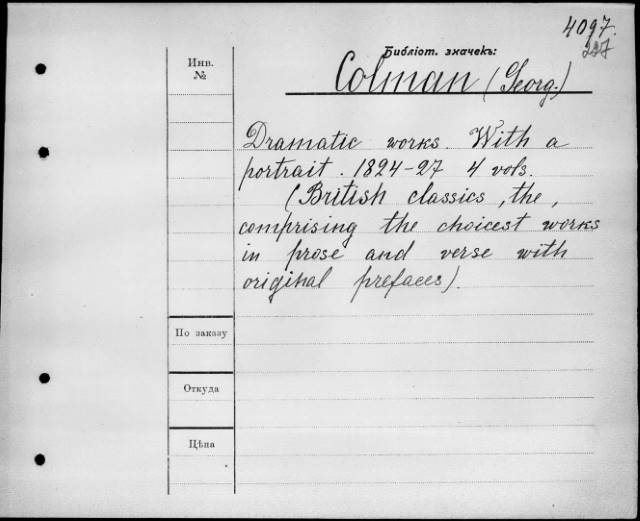 4097.
227
Библіот. значекъ:
Инв.
№
Colman (Georg.)
Dramatic works. With a
portrait. 1824-27 4 vols.
(British classics, the,
comprising the choicest works
in prose and verse with
original prefaces).
По заказу
Откуда
Цѣна